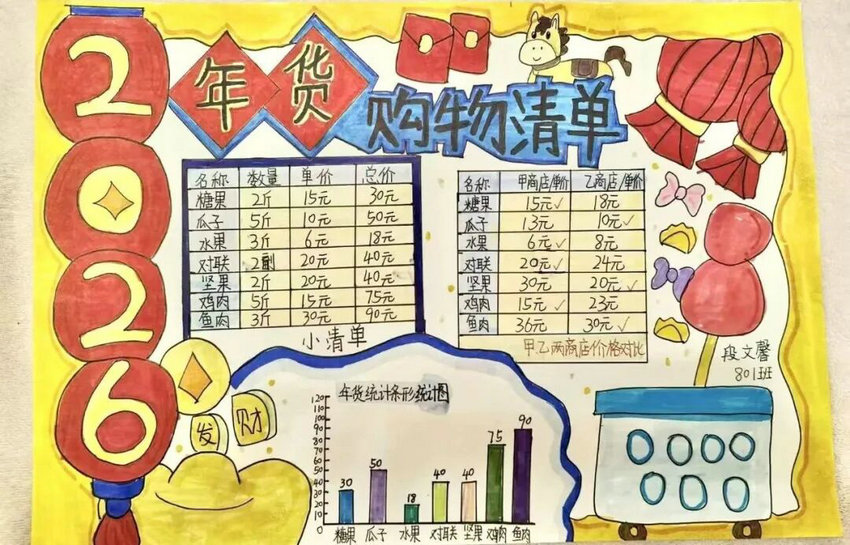 2026
年货
购物清单
名称 数量 单价 总价
糖果 2斤 15元 30元
瓜子 5斤 10元 50元
水果 3斤 6元 18元
对联 2副 20元 40元
坚果 2斤 20元 40元
鸡肉 5斤 15元 75元
鱼肉 3斤 30元 90元
小清单
名称 甲商店/单价 乙商店/单价
糖果 15元✓ 18元
瓜子 13元 10元✓
水果 6元✓ 8元
对联 20元✓ 24元
坚果 30元 20元✓
鸡肉 15元✓ 23元
鱼肉 36元 30元✓
甲乙两商店价格对比
段文馨
801班
发财
年货统计条形统计图
120
110
100
90
80
70
60
50
40
30
20
10
0
30 50 18 40 40 75 90
糖果 瓜子 水果 对联 坚果 鸡肉 鱼肉